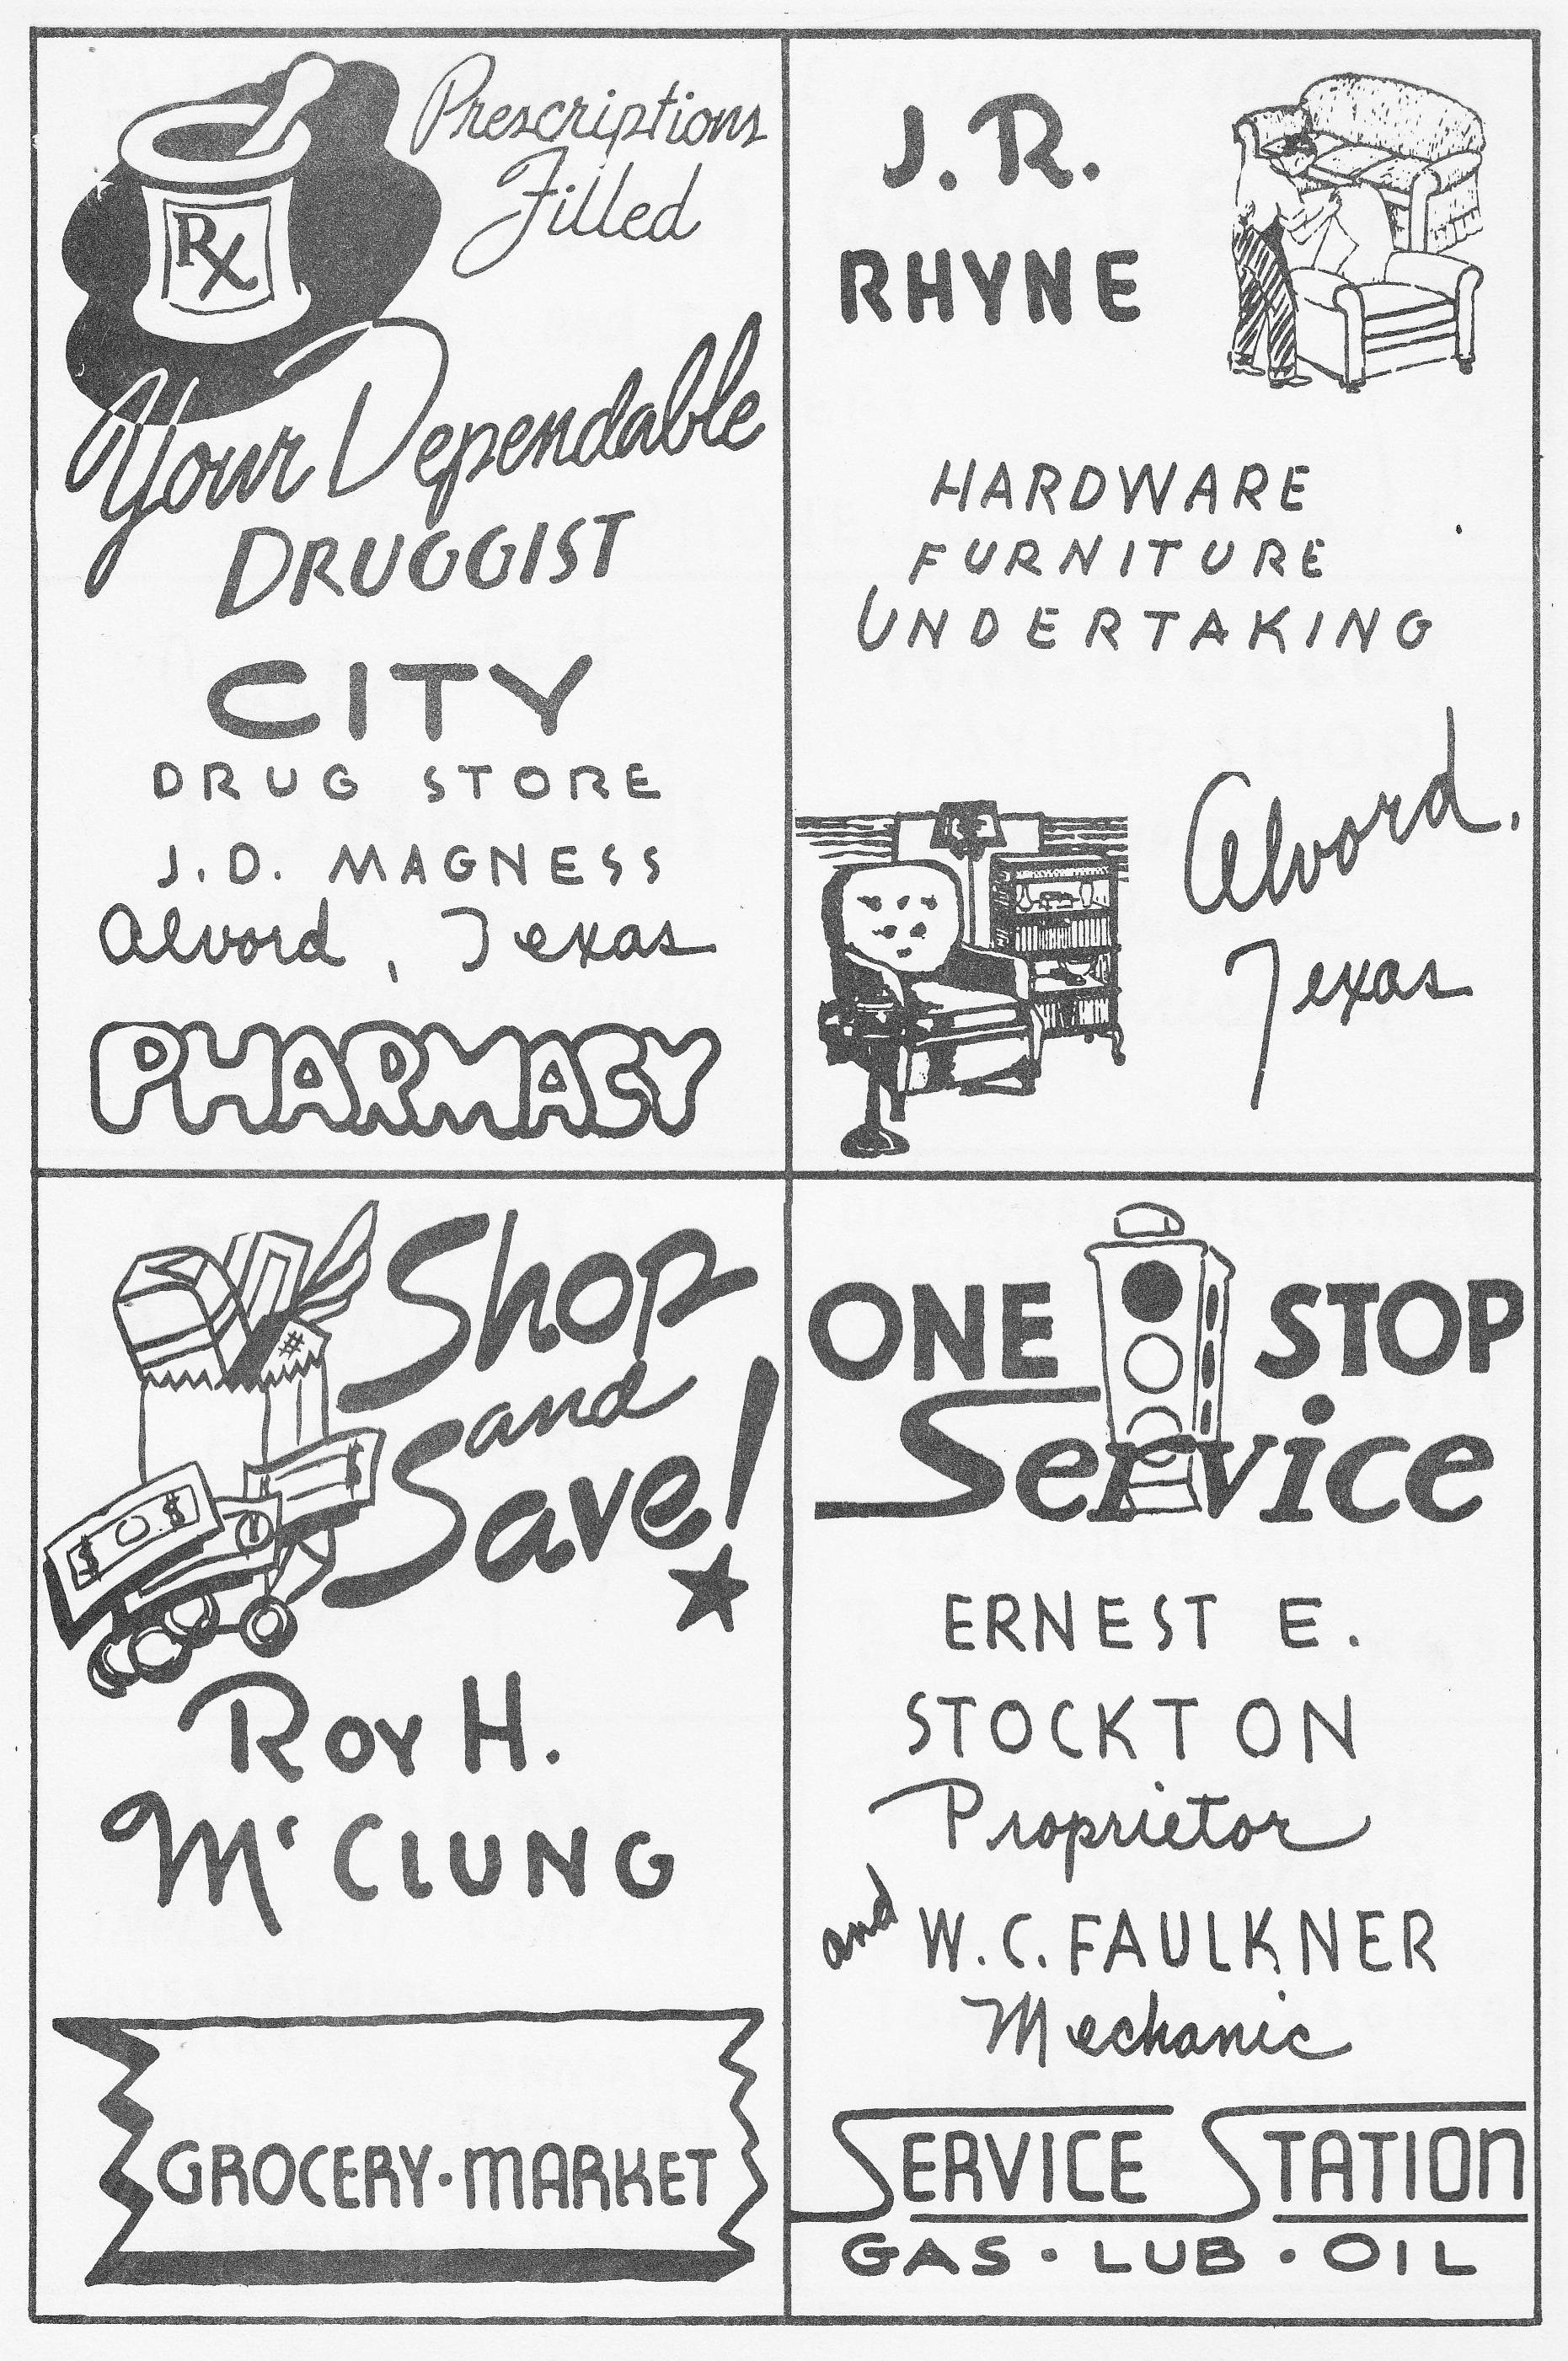 Prescriptions
Filled
Rx
Your Dependable
DRUGGIST
CITY
DRUG STORE
J.D. MAGNESS
Alvord, Texas
PHARMACY
J. R.
RHYNE
HARDWARE
FURNITURE
UNDERTAKING
Alvord,
Texas
Shop
and
Save!
#
$
$ $
Roy H.
Mc CLUNG
GROCERY · MARKET
ONE STOP
Service
ERNEST E.
STOCKTON
Proprietor
and W. C. FAULKNER
Mechanic
SERVICE STATION
GAS · LUB · OIL